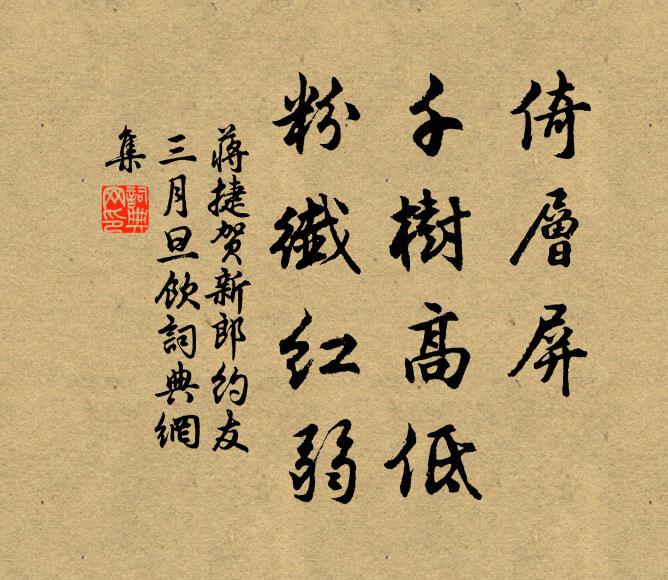 倚層屏
千樹高低
粉纖紅弱
蔣捷賀新郎約友
三月旦飲詞典網
集
詞典网印